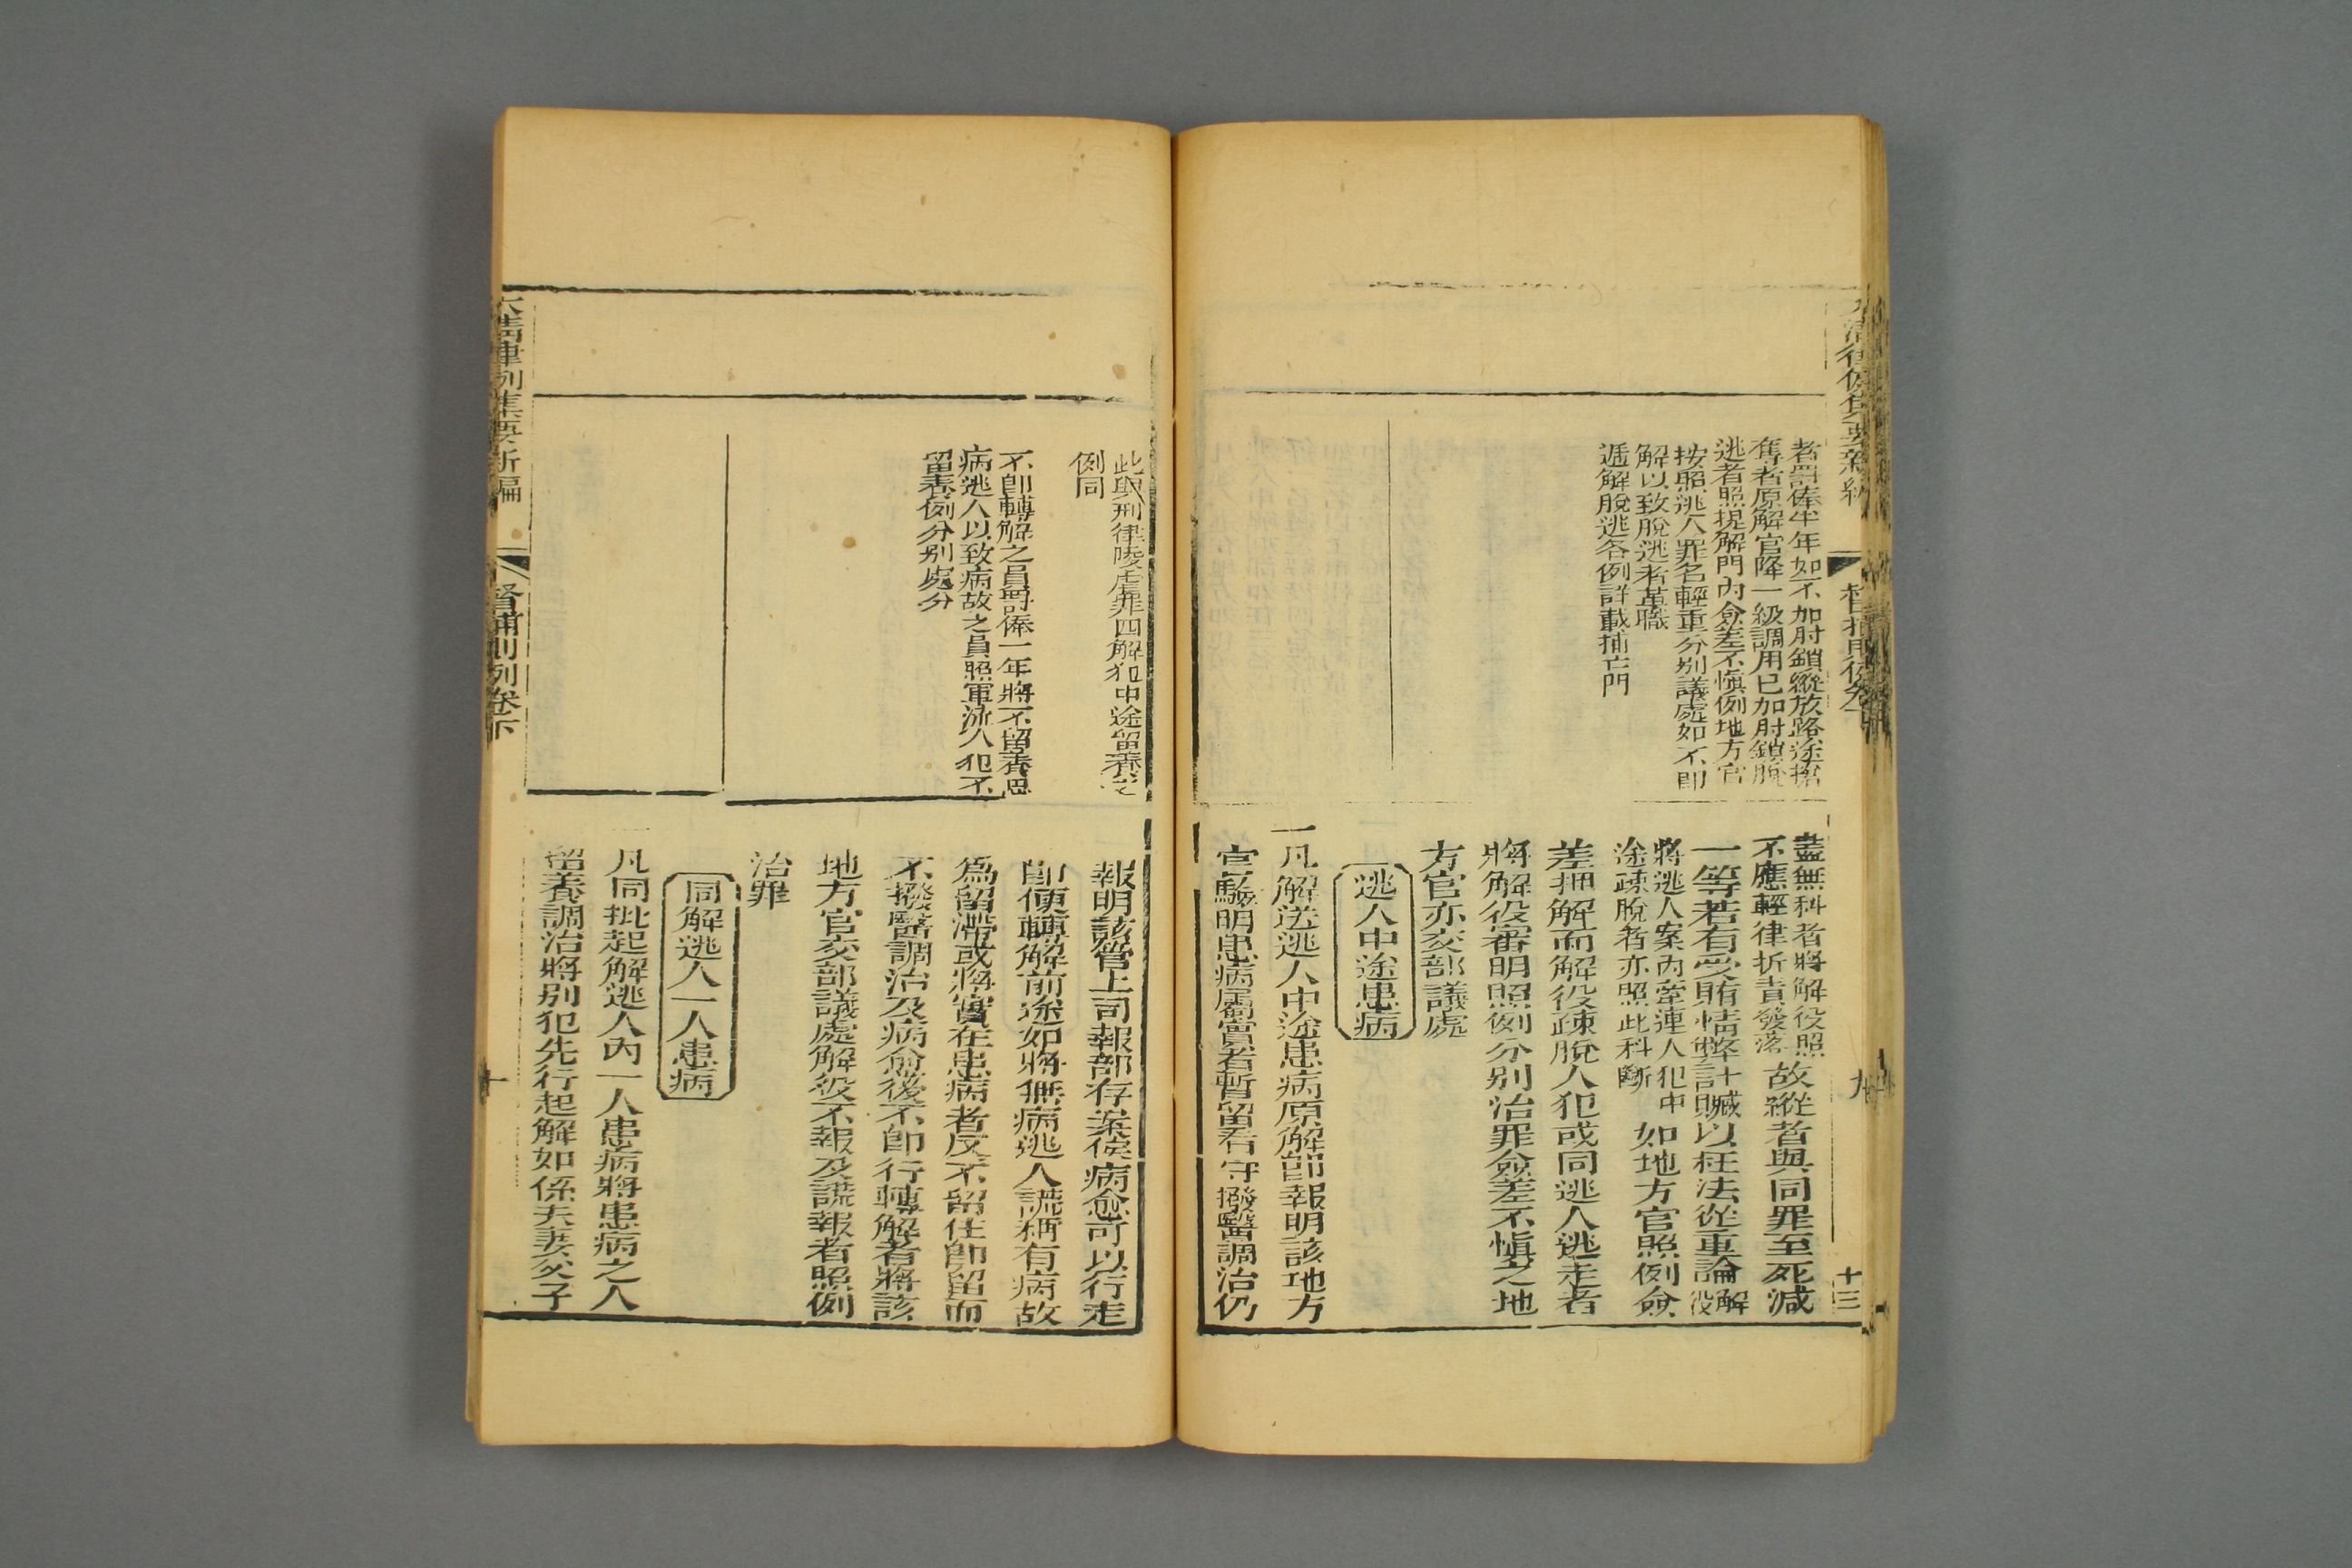 者罰俸半年如不加肘鎖縱放路途搶
奪者原解官降一級調用已加肘鎖脫
逃者照提解門內僉差不慎例地方官
按照逃人罪名輕重分別議處如不即
解以致脫逃者革職
遞解脫逃各例詳載捕亡門
盡無科者將解役照
不應輕律折責發落
故縱者與同罪至死減
一等若有受賄情弊計贓以枉法從重論解
役
將逃人案內牽連人犯中
途疎脫者亦照此科斷
如地方官照例僉
差押解而解役疎脫人犯或同逃人逃走者
將解役審明照例分別治罪僉差不慎之地
方官亦交部議處
逃人中途患病
一凡解送逃人中途患病原解即報明該地方
官驗明患病屬實者暫留看守撥醫調治仍
九
十三
此與刑律陵虐罪囚解犯中途留養之
例同
不即轉解之員罰俸一年將不留養患
病逃人以致病故之員照軍流人犯不
留養例分別處分
報明該管上司報部存案俟病愈可以行走
即便轉解前途如將無病逃人謊稱有病故
爲留滯或將實在患病者反不留住即留而
不撥醫調治及病愈後不即行轉解者將該
地方官交部議處解役不報及謊報者照例
治罪
同解逃人一人患病
一凡同批起解逃人內一人患病將患病之人
留養調治將別犯先行起解如係夫妻父子
大清律例集要新編
督捕則例卷下
十